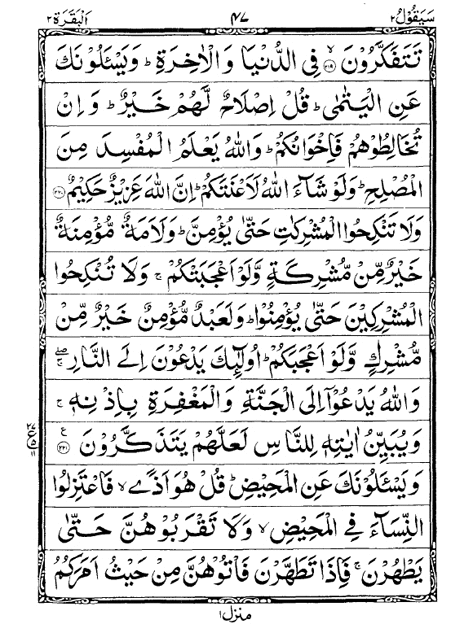 سَيَقُوْلُ ٢ ٤٧ اَلْبَقَرَة ٢
تَتَفَكَّرُوْنَ ۙ﴿٢١٩﴾ فِی الدُّنْيَا وَالْاٰخِرَةِ ؕ وَيَسْـَٔلُوْنَكَ
عَنِ الْيَتٰمٰی ؕ قُلْ اِصْلَاحٌ لَّهُمْ خَيْرٌ ؕ وَاِنْ
تُخَالِطُوْهُمْ فَاِخْوَانُكُمْ ؕ وَاللّٰهُ يَعْلَمُ الْمُفْسِدَ مِنَ
الْمُصْلِحِ ؕ وَلَوْ شَآءَ اللّٰهُ لَاَعْنَتَكُمْ ؕ اِنَّ اللّٰهَ عَزِيْزٌ حَكِيْمٌ ﴿٢٢٠﴾
وَلَا تَنْكِحُوا الْمُشْرِكٰتِ حَتّٰی يُؤْمِنَّ ؕ وَلَاَمَةٌ مُّؤْمِنَةٌ
خَيْرٌ مِّنْ مُّشْرِكَةٍ وَّلَوْ اَعْجَبَتْكُمْ ۚ وَلَا تُنْكِحُوا
الْمُشْرِكِيْنَ حَتّٰی يُؤْمِنُوْا ؕ وَلَعَبْدٌ مُّؤْمِنٌ خَيْرٌ مِّنْ
مُّشْرِكٍ وَّلَوْ اَعْجَبَكُمْ ؕ اُولٰٓئِكَ يَدْعُوْنَ اِلَی النَّارِ ۖۚ
وَاللّٰهُ يَدْعُوْۤا اِلَی الْجَنَّةِ وَالْمَغْفِرَةِ بِاِذْنِهٖ ۚ
وَيُبَيِّنُ اٰيٰتِهٖ لِلنَّاسِ لَعَلَّهُمْ يَتَذَكَّرُوْنَ ﴿٢٢١﴾ ع
وَيَسْـَٔلُوْنَكَ عَنِ الْمَحِيْضِ ؕ قُلْ هُوَ اَذًی ۙ فَاعْتَزِلُوا
النِّسَآءَ فِی الْمَحِيْضِ ۙ وَلَا تَقْرَبُوْهُنَّ حَتّٰی
يَطْهُرْنَ ۚ فَاِذَا تَطَهَّرْنَ فَاْتُوْهُنَّ مِنْ حَيْثُ اَمَرَكُمُ
منزل ١